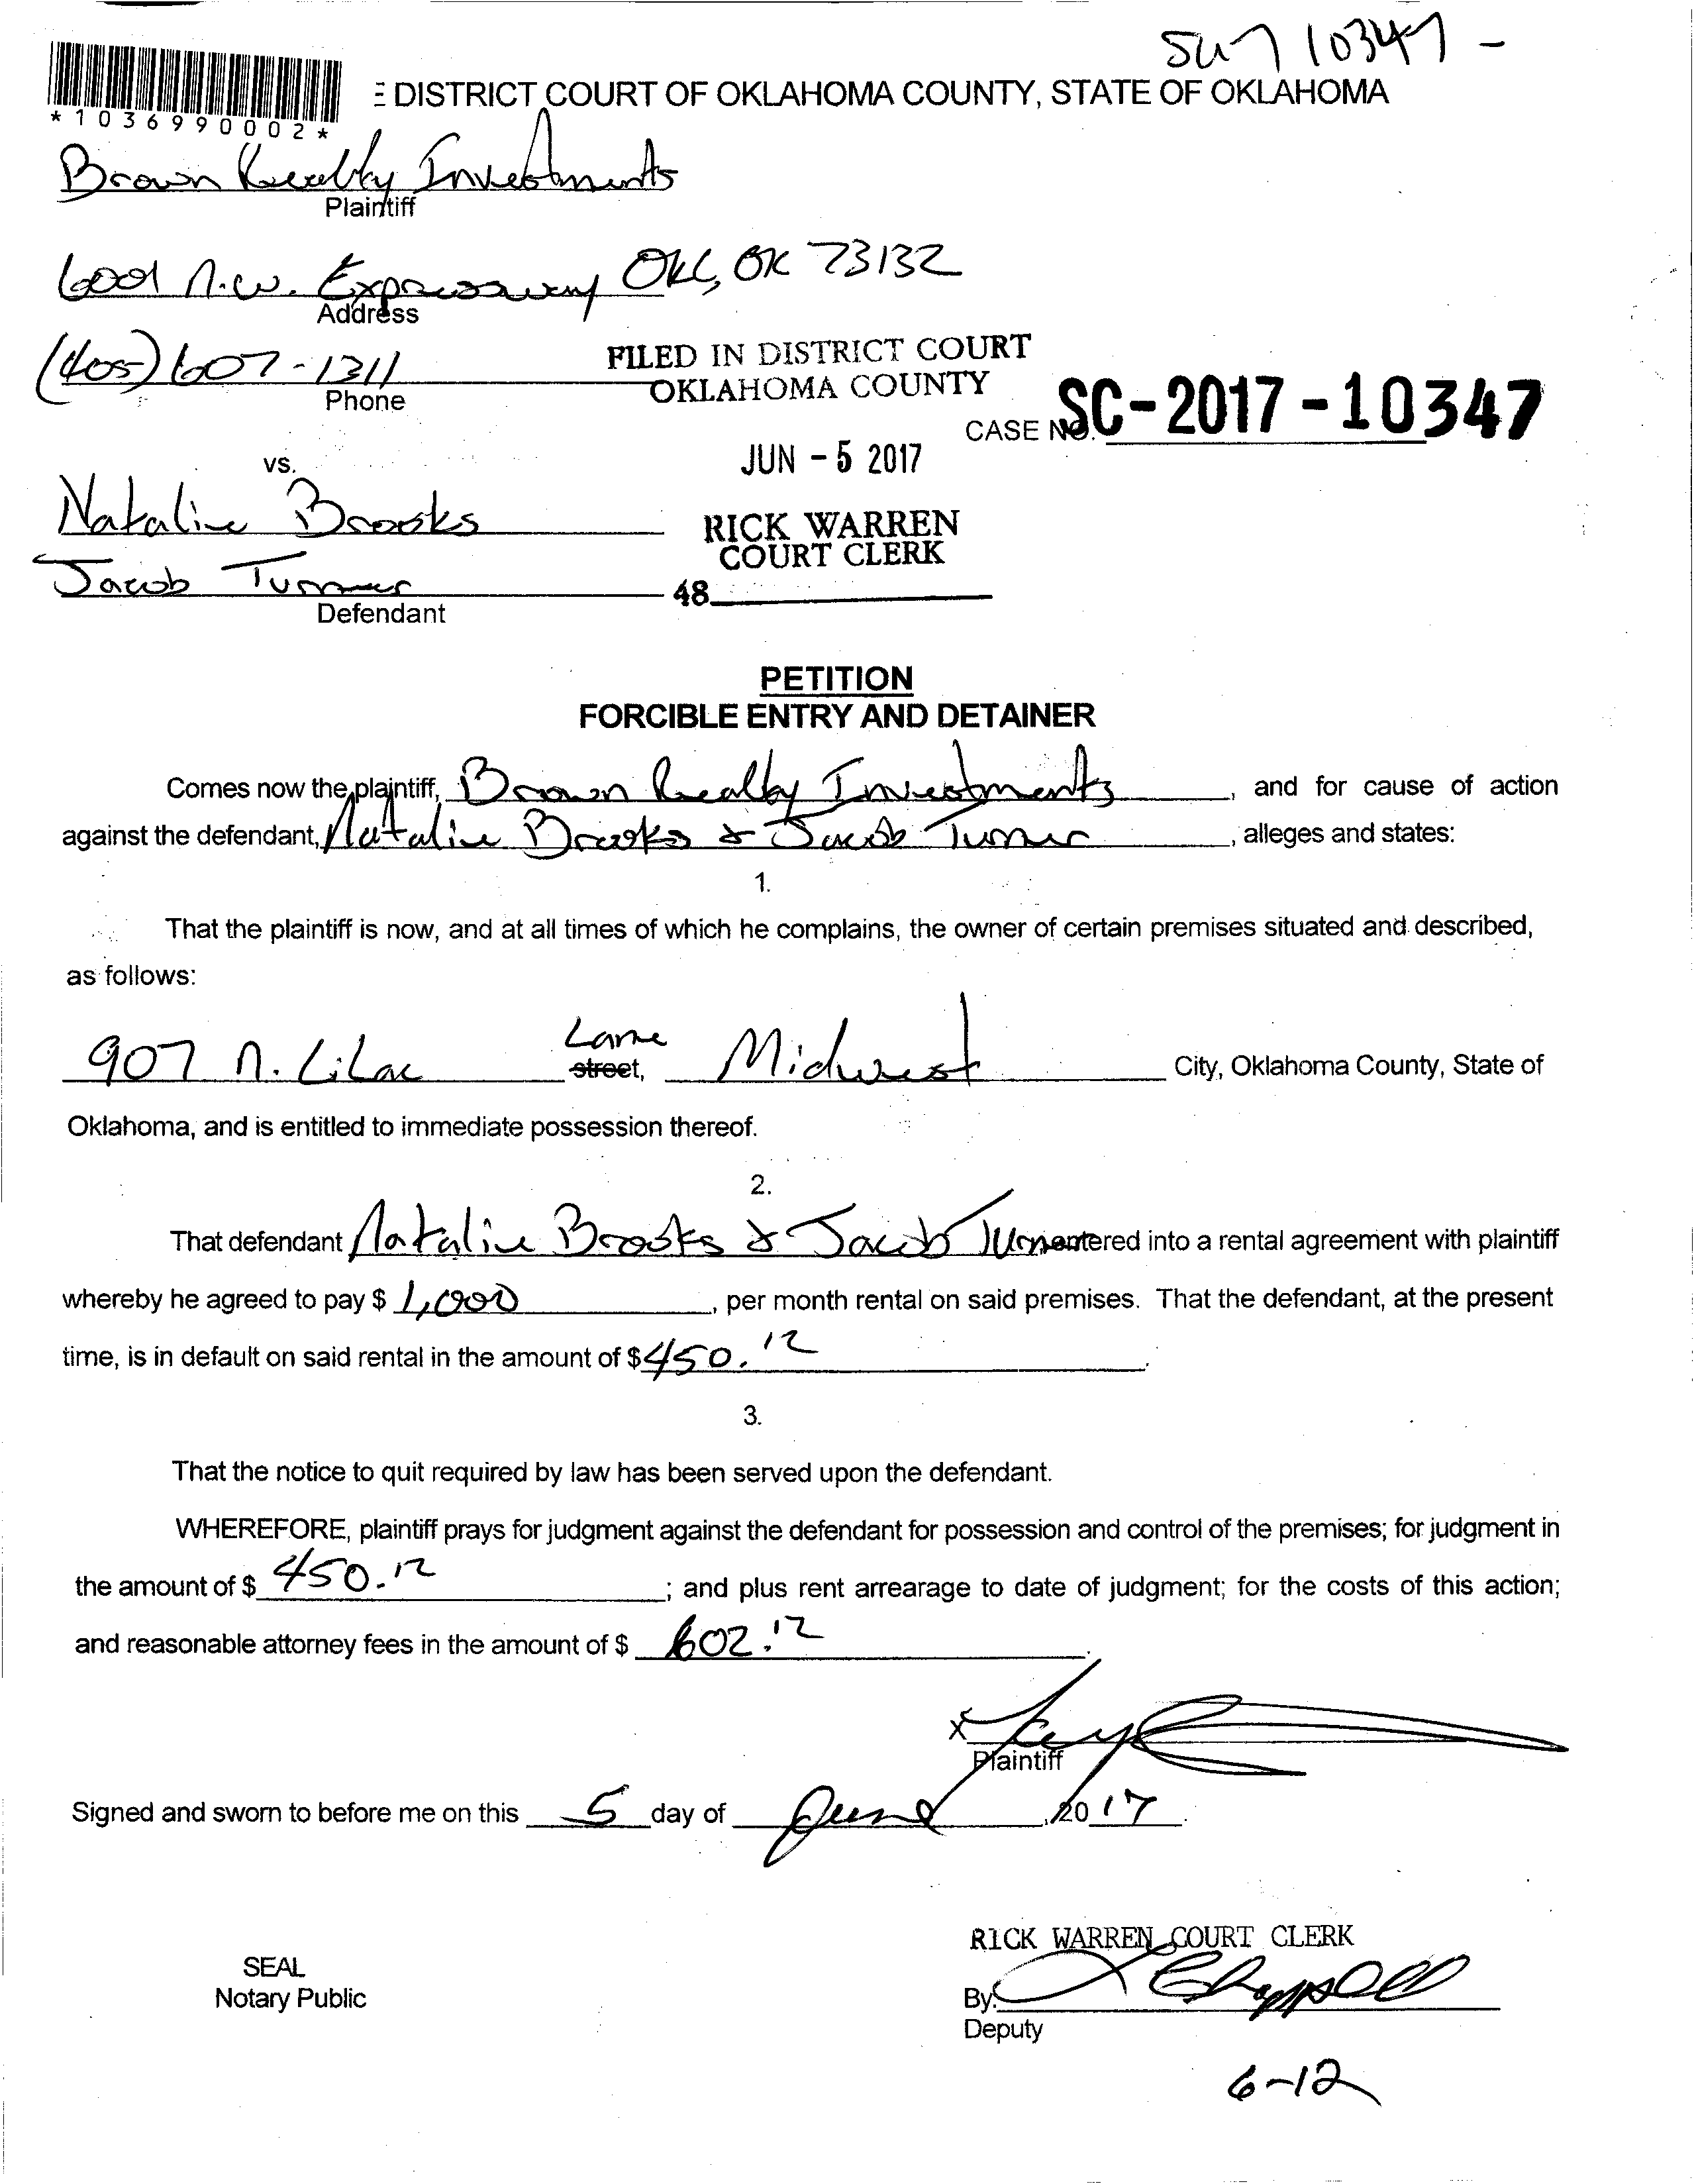 SC17 10347 -
* 1 0 3 6 9 9 0 0 0 2 *
E DISTRICT COURT OF OKLAHOMA COUNTY, STATE OF OKLAHOMA
Brown Realty Investments
Plaintiff
6001 N.W. Expressway OKC, OK 73132
Address
(405) 607-1311
Phone
FILED IN DISTRICT COURT
OKLAHOMA COUNTY
CASE NO. SC-2017-10347
JUN - 5 2017
vs.
Natalie Brooks
RICK WARREN
COURT CLERK
Jacob Turner
48
Defendant
PETITION
FORCIBLE ENTRY AND DETAINER
Comes now the plaintiff, Brown Realty Investments, and for cause of action
against the defendant, Natalie Brooks & Jacob Turner, alleges and states:
1.
That the plaintiff is now, and at all times of which he complains, the owner of certain premises situated and described,
as follows:
907 N. Lilac Lane street, Midwest City, Oklahoma County, State of
Oklahoma, and is entitled to immediate possession thereof.
2.
That defendant Natalie Brooks & Jacob Turner entered into a rental agreement with plaintiff
whereby he agreed to pay $ 1,000, per month rental on said premises. That the defendant, at the present
time, is in default on said rental in the amount of $450.12.
3.
That the notice to quit required by law has been served upon the defendant.
WHEREFORE, plaintiff prays for judgment against the defendant for possession and control of the premises; for judgment in
the amount of $ 450.12; and plus rent arrearage to date of judgment; for the costs of this action;
and reasonable attorney fees in the amount of $ 602.12.
X
Plaintiff
Signed and sworn to before me on this 5 day of June, 2017.
RICK WARREN COURT CLERK
SEAL
Notary Public
By: Chappell
Deputy
6-12